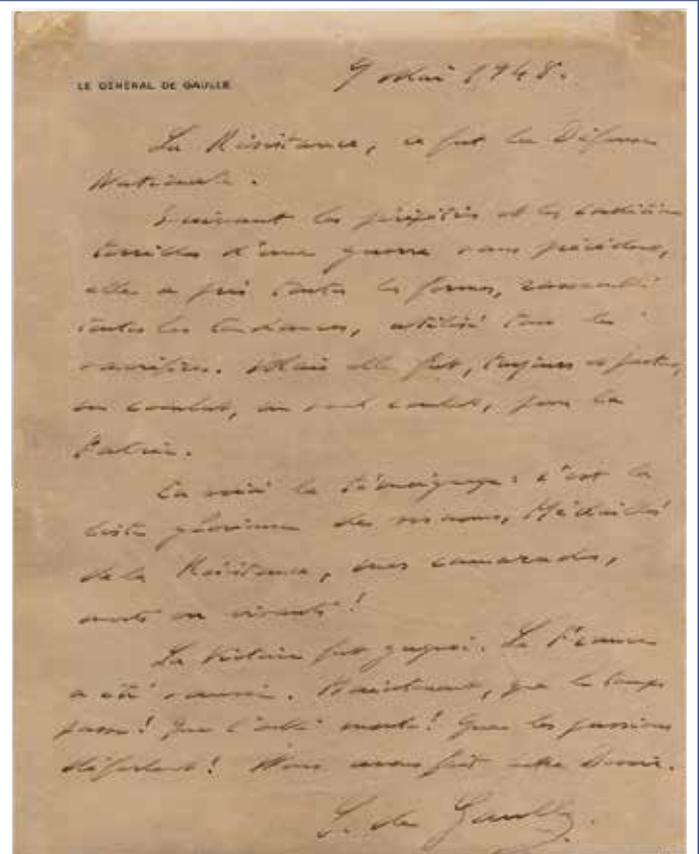 LE GÉNÉRAL DE GAULLE
9 Mai 1948.
La Résistance, ce fut la Défense
Nationale.
Suivant les péripéties et les conditions
terribles d'une guerre sans précédent,
elle a pris toutes les formes, rassemblé
toutes les tendances, utilisé tous les
sacrifices. Mais elle fut, toujours et partout,
un combat, un seul combat, pour la
Patrie.
En voici le témoignage : c'est la
liste glorieuse de vos noms, Médaillés
de la Résistance, mes camarades,
morts ou vivants !
La Victoire fut gagnée. La France
a été sauvée. Maintenant, que le temps
passe ! Que l'oubli monte ! Que les passions
déferlent ! Nous avons fait notre Devoir.
G. de Gaulle.